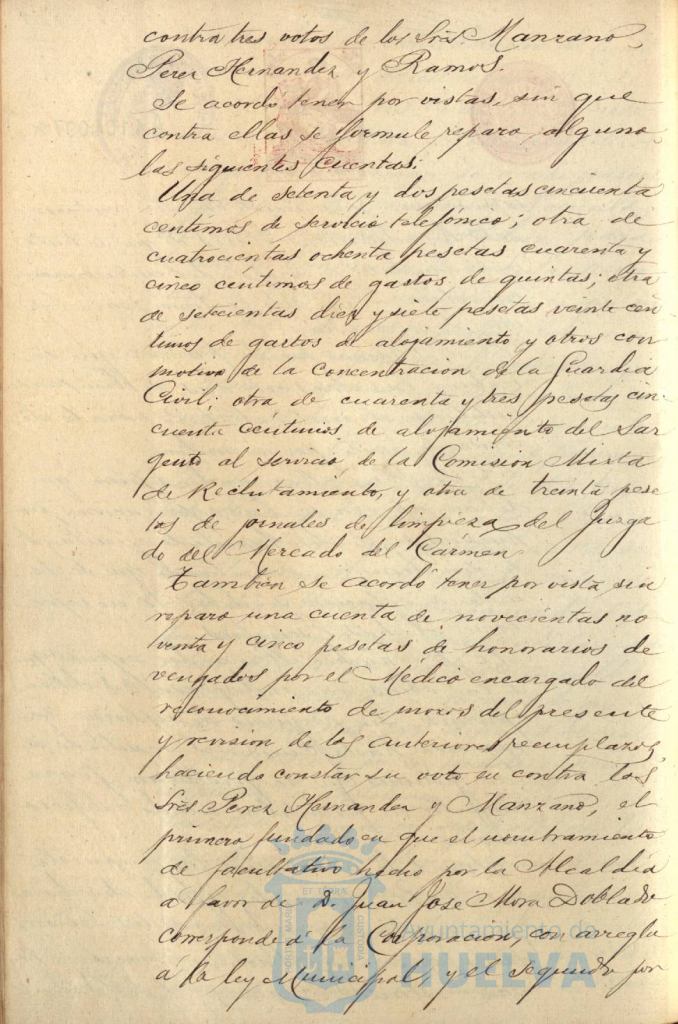 contra tres votos de los Sres. Manzano,
Perez Hernandez y Ramos.
Se acordó tener por vistas, sin que
contra ellas se formule reparo alguno,
las siguientes cuentas:
Una de setenta y dos pesetas cincuenta
centimos de servicio telefónico; otra de
cuatrocientas ochenta pesetas cuarenta y
cinco céntimos de gastos de quintas; otra
de setecientas diez y siete pesetas veinte cen
timos de gastos de alojamiento y otros con
motivo de la concentracion de la Guardia
Civil; otra de cuarenta y tres pesetas cin-
cuenta céntimos de alojamiento del Sar
gento al servicio de la Comision Mixta
de Reclutamiento, y otra de treinta pese
tas de jornales de limpieza del Juzga
do del Mercado del Cármen
Tambien se acordó tener por vista sin
reparo una cuenta de novecientas no
venta y cinco pesetas de honorarios de
vengados por el Médico encargado del
reconocimiento de mozos del presente
y revision de los anteriores reemplazos,
haciendo constar su voto en contra los
Sres. Perez Hernandez y Manzano, el
primero fundado en que el nombramiento
de facultativo hecho por la Alcaldía
a favor de D. Juan José Mora Doblado
corresponde á la Corporacion, con arreglo
á la ley Municipal, y el segundo por
Ayuntamiento de
HUELVA